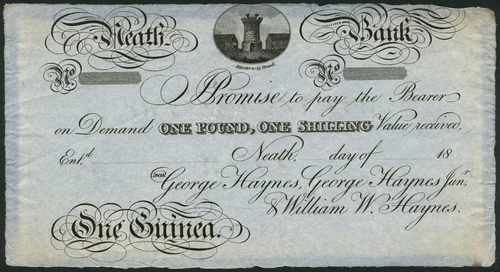 Neath Bank
No. No.
I Promise to pay the Bearer
on Demand ONE POUND, ONE SHILLING Value received,
Ent.d Neath, day of 18
For George Haynes, George Haynes Junr.
& William W. Haynes.
One Guinea.